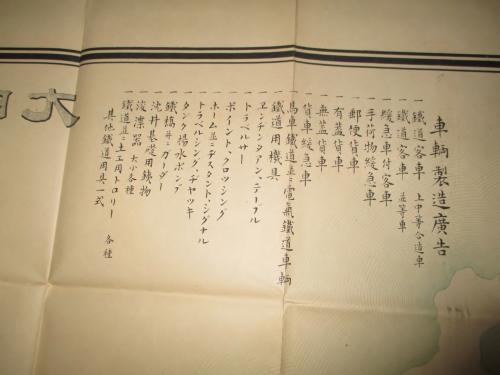 車輌製造廣告
一 鐵道客車 上中等合造車
一 鐵道客車 並等車
一 緩急車付客車
一 手荷物緩急車
一 郵便貨車
一 有蓋貨車
一 無蓋貨車
一 貨車緩急車
一 馬車鐵道並ニ電氣鐵道車輌
一 鐵道用機具
一 ヱンヂンタアンテーブル
一 トラベルサー
一 ポイント、クロッシング
一 ホーム並ニヂスタント、シグナル
一 トラベルシング、ヂャッキ
一 タンク揚水ポンプ
一 鐵橋並ニガーダー
一 沈井基礎用鋳物
一 浚渫器 大小各種
一 鐵道並ニ土工用トロリー
其他鐵道用具一式 各種
大